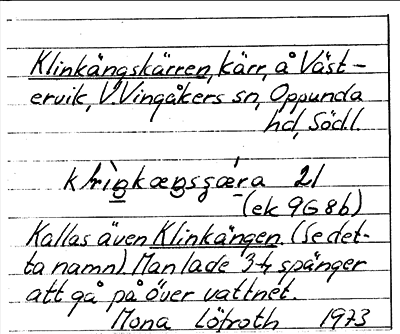 Klinkängskärren, kärr, å Väst-
ervik, V. Vingåkers sn, Oppunda
hd, Södl.
21
(ek 9G 8b)
Kallas även Klinkängen. (Se det-
ta namn). Man lade 3-4 spänger
att gå på över vattnet.
Mona Löfroth 1973